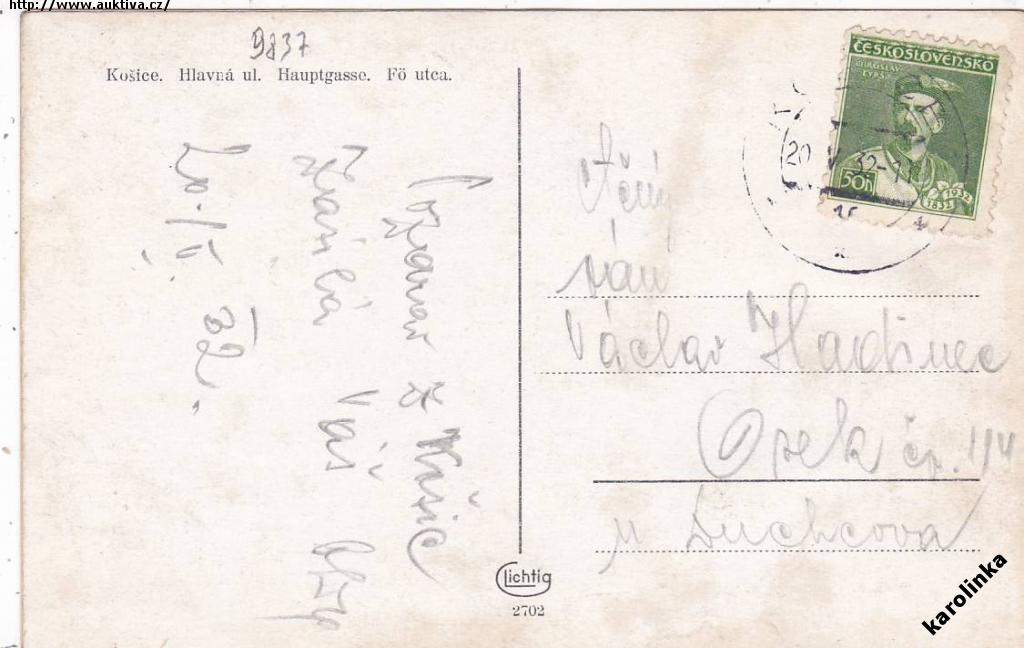 http://www.auktiva.cz/
9837
Košice. Hlavná ul. Hauptgasse. Fö utca.
Pozdrav z Košic
zasílá Váš
20. V. 32.
ČESKOSLOVENSKO
MIROSLAV
TYRŠ
50h
1932
1832
20 V 32
pán
Václav Hadinec
Osek čp. 114
u Duchcova
Lichtig
2702
karolinka